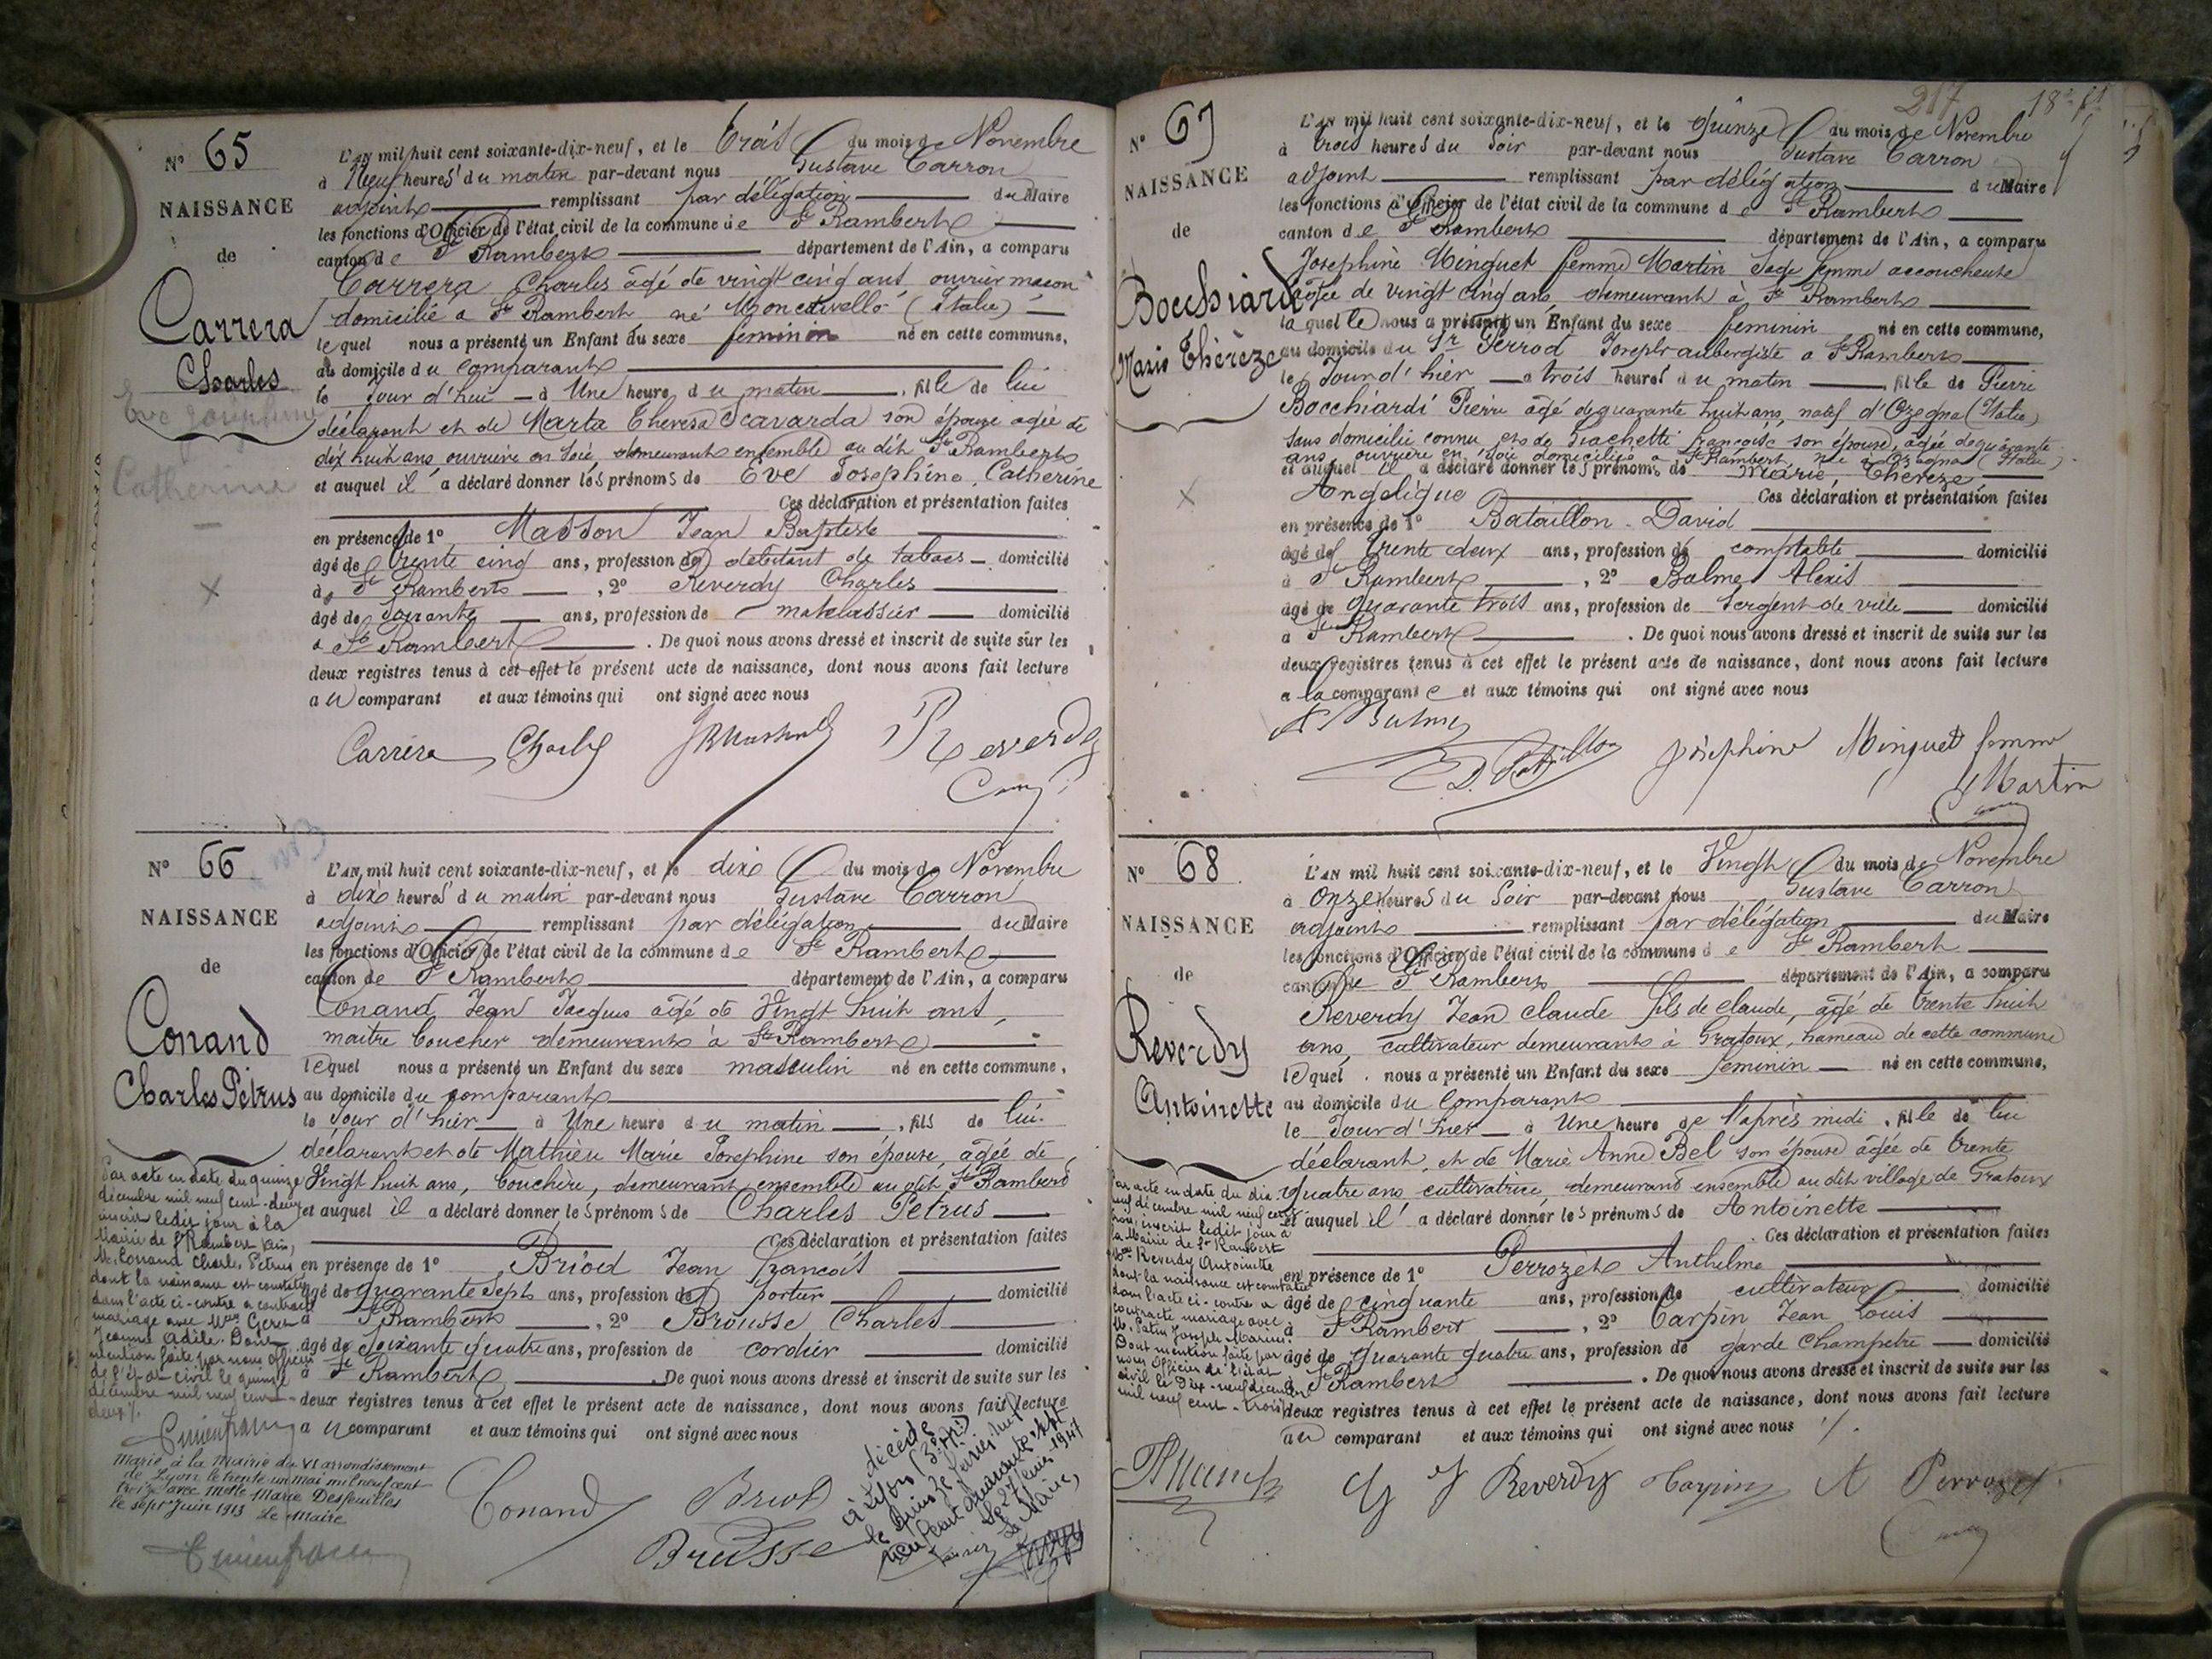 N° 65
NAISSANCE
de
Carrera
Charles
Eve Joséphine
Catherine
L'AN mil huit cent soixante-dix-neuf, et le trois du mois de Novembre
à Neuf heures du matin par-devant nous Gustave Carron
adjoint remplissant par délégation du Maire
les fonctions d'Officier de l'état civil de la commune de St Rambert
canton de St Rambert département de l'Ain, a comparu
Carrera Charles âgé de vingt cinq ans, ouvrier maçon
domicilié à St Rambert né (Italie)
lequel nous a présenté un Enfant du sexe féminin né en cette commune,
au domicile du comparant
le Jour d'hui à Une heure du matin, fille de lui
déclarant et de Marta Theresa Scavarda son épouse âgée de
dix huit ans ouvrière en soie, demeurant ensemble au dit St Rambert
et auquel il a déclaré donner les prénoms de Eve Josephine, Catherine
Ces déclaration et présentation faites
en présence de 1° Masson Jean Baptiste
âgé de trente cinq ans, profession de débitant de tabacs domicilié
à St Rambert, 2° Reverdy Charles
âgé de Soixante ans, profession de matelassier domicilié
à St Rambert. De quoi nous avons dressé et inscrit de suite sur les
deux registres tenus à cet effet le présent acte de naissance, dont nous avons fait lecture
au comparant et aux témoins qui ont signé avec nous
Carrera Charles JB Masson Reverdy
N° 66
NAISSANCE
de
Conand
Charles Pétrus
L'AN mil huit cent soixante-dix-neuf, et le dix du mois de Novembre
à dix heures du matin par-devant nous Gustave Carron
adjoint remplissant par délégation du Maire
les fonctions d'Officier de l'état civil de la commune de St Rambert
canton de St Rambert département de l'Ain, a comparu
Conand Jean Jacques âgé de Vingt huit ans,
maitre boucher demeurant à St Rambert
lequel nous a présenté un Enfant du sexe masculin né en cette commune,
au domicile du comparant
le Jour d'hier à Une heure du matin, fils de lui
déclarant et de Mathieu Marie Josephine son épouse, âgée de
Vingt huit ans, bouchère, demeurant ensemble au dit St Rambert
et auquel il a déclaré donner les prénoms de Charles Petrus
Ces déclaration et présentation faites
en présence de 1° Briod Jean François
âgé de quarante sept ans, profession de portier domicilié
à St Rambert, 2° Brousse Charles
âgé de Soixante quatre ans, profession de cordier domicilié
à St Rambert De quoi nous avons dressé et inscrit de suite sur les
deux registres tenus à cet effet le présent acte de naissance, dont nous avons fait lecture
au comparant et aux témoins qui ont signé avec nous
Par acte en date du quinze
décembre mil neuf cent deux
inscrit ledit jour à la
Mairie de St Rambert Ain,
M. Conand Charles Pétrus
dont la naissance est constatée
dans l'acte ci-contre a contracté
mariage avec Mlle
Jeanne Adèle. Dont
mention faite par nous Officier
de l'état-civil le quinze
décembre mil neuf cent
deux
Marié à la Mairie du VI arrondissement
de Lyon le trente un mai mil neuf cent
treize avec Melle Marie Desfeuilles
le sept Juin 1913 Le Maire
Conand Briod
Brousse
décédé
à Lyon (3e)
le quinze février mil
neuf cent quarante sept
Le 27 février 1947
Le Maire,
217
N° 67
NAISSANCE
de
Bocchiardi
Marie Thérèze
L'AN mil huit cent soixante-dix-neuf, et le Quinze du mois de Novembre
à trois heures du Soir par-devant nous Gustave Carron
adjoint remplissant par délégation du Maire
les fonctions d'Officier de l'état civil de la commune de St Rambert
canton de St Rambert département de l'Ain, a comparu
Josephine Minguet femme Martin Sage femme accoucheuse
âgée de vingt cinq ans, demeurant à St Rambert
laquelle nous a présenté un Enfant du sexe féminin né en cette commune,
au domicile du Sr Perrod Joseph aubergiste à St Rambert
le Jour d'hier à trois heures du matin, fille de Pierre
Bocchiardi Pierre âgé de quarante huit ans, natif d'Ozegna (Italie)
sans domicilié connu et de Giachetti françoise son épouse, âgée de quarante
ans ouvrière en soie domiciliée à St Rambert, née à Ozegna (Italie)
et auquel il a déclaré donner les prénoms de Marie, Thérèze
Angélique Ces déclaration et présentation faites
en présence de 1° Bataillon David
âgé de trente deux ans, profession de comptable domicilié
à St Rambert, 2° Balme Alexis
âgé de quarante trois ans, profession de Sergent de ville domicilié
à St Rambert. De quoi nous avons dressé et inscrit de suite sur les
deux registres tenus à cet effet le présent acte de naissance, dont nous avons fait lecture
a la comparante et aux témoins qui ont signé avec nous
A Balme
D. Bataillon Joséphine Minguet femme
Martin
N° 68
NAISSANCE
de
Reverdy
Antoinette
L'AN mil huit cent soixante-dix-neuf, et le Vingt du mois de Novembre
à onze heures du Soir par-devant nous Gustave Carron
adjoint remplissant par délégation du Maire
les fonctions d'Officier de l'état civil de la commune de St Rambert
canton de St Rambert département de l'Ain, a comparu
Reverdy Jean claude fils de claude, âgé de trente huit
ans, cultivateur demeurant à Gratoux, hameau de cette commune
lequel nous a présenté un Enfant du sexe féminin né en cette commune,
au domicile du Comparant
le Jour d'hier à Une heure de l'après midi, fille de lui
déclarant, et de Marie Anne Bel son épouse âgée de trente
quatre ans cultivatrice, demeurant ensemble au dit village de Gratoux
et auquel il a déclaré donner les prénoms de Antoinette
Ces déclaration et présentation faites
en présence de 1° Perrozet Anthelme
âgé de cinquante ans, profession de cultivateur domicilié
à St Rambert, 2° Carpin Jean Louis
âgé de quarante quatre ans, profession de garde champetre domicilié
à St Rambert. De quoi nous avons dressé et inscrit de suite sur les
deux registres tenus à cet effet le présent acte de naissance, dont nous avons fait lecture
au comparant et aux témoins qui ont signé avec nous
Par acte en date du dix
neuf décembre mil neuf cent
trois, inscrit ledit jour à
la Mairie de St Rambert
Reverdy Antoinette
dont la naissance est constatée
dans l'acte ci-contre a
contracté mariage avec
M. Patin Joseph Marius.
Dont mention faite par
nous Officier de l'état
civil le Dix-neuf décembre
mil neuf cent trois
Reverdy Carpin A Perrozet